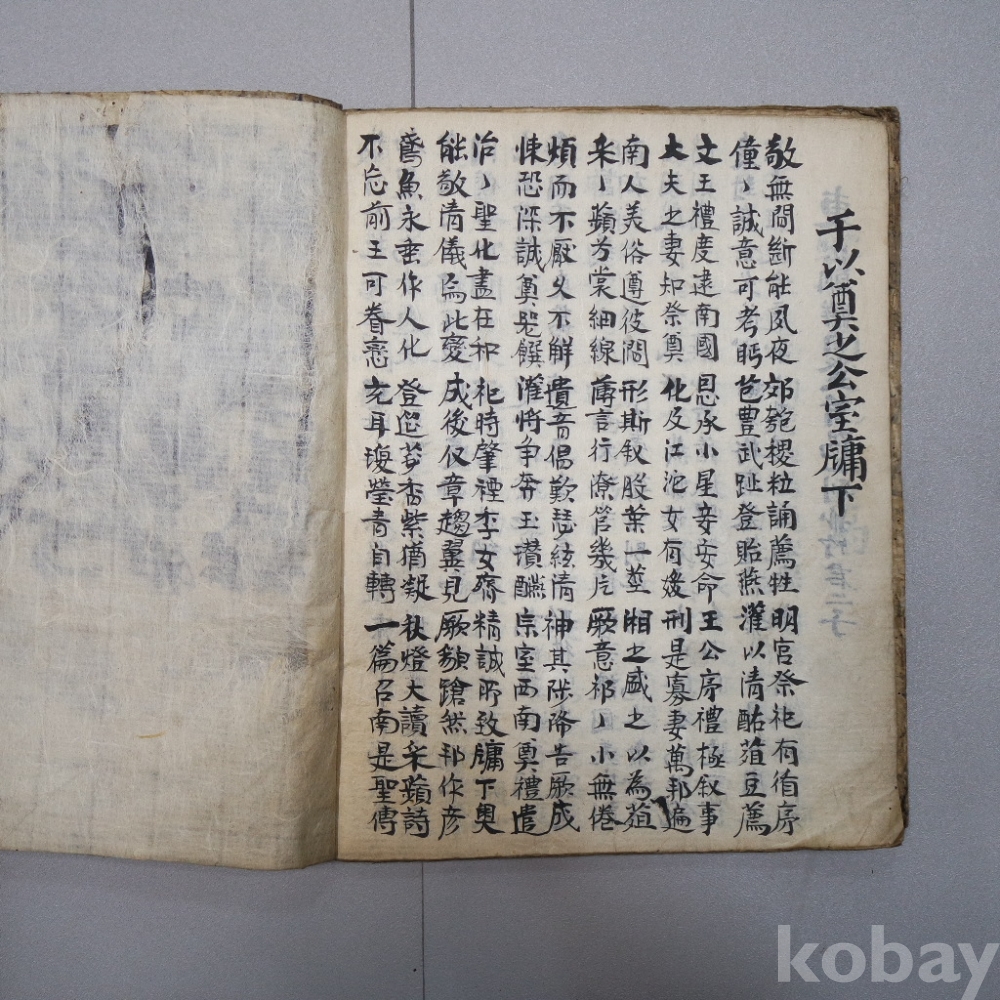 于以奠之公室牖下
敬無間斷能夙夜 郊匏稷粒誦薦牲 明宮祭祀有循序
僮〻誠意可考眄 芑豊武趾登貽燕 灌以清酤菹豆薦
文王禮度逮南國 恩承小星妾安命 王公序禮極叙事
大夫之妻知祭奠 化及江沱女有嫁 刑是寡妻萬邦遍
南人美俗遵彼 形斯叙股葉一莖 湘之盛之以為菹
采〻蘋芳裳細線 薄言行潦筐幾片 厥意祁〻小無倦
煩而不厭久不解 遺音倡歎瑟絃清 神其陟降告厥成
悚恐深誠奠饌 灌將爭奔玉瓚醼 宗室西南奠禮遣
洽〻聖化盡在和 祀時肇禋季女齊 精誠所致牖下奥
能敬清儀為此變 成後仪章趨翼見 厥貌蹌然邦作彦
鳶魚永垂作人化 登筵芬香紫猶凝 秋燈大讀采蘋詩
不忘前王可眷恋 充耳瓊瑩青自轉 一篇召南是聖傳
kobay